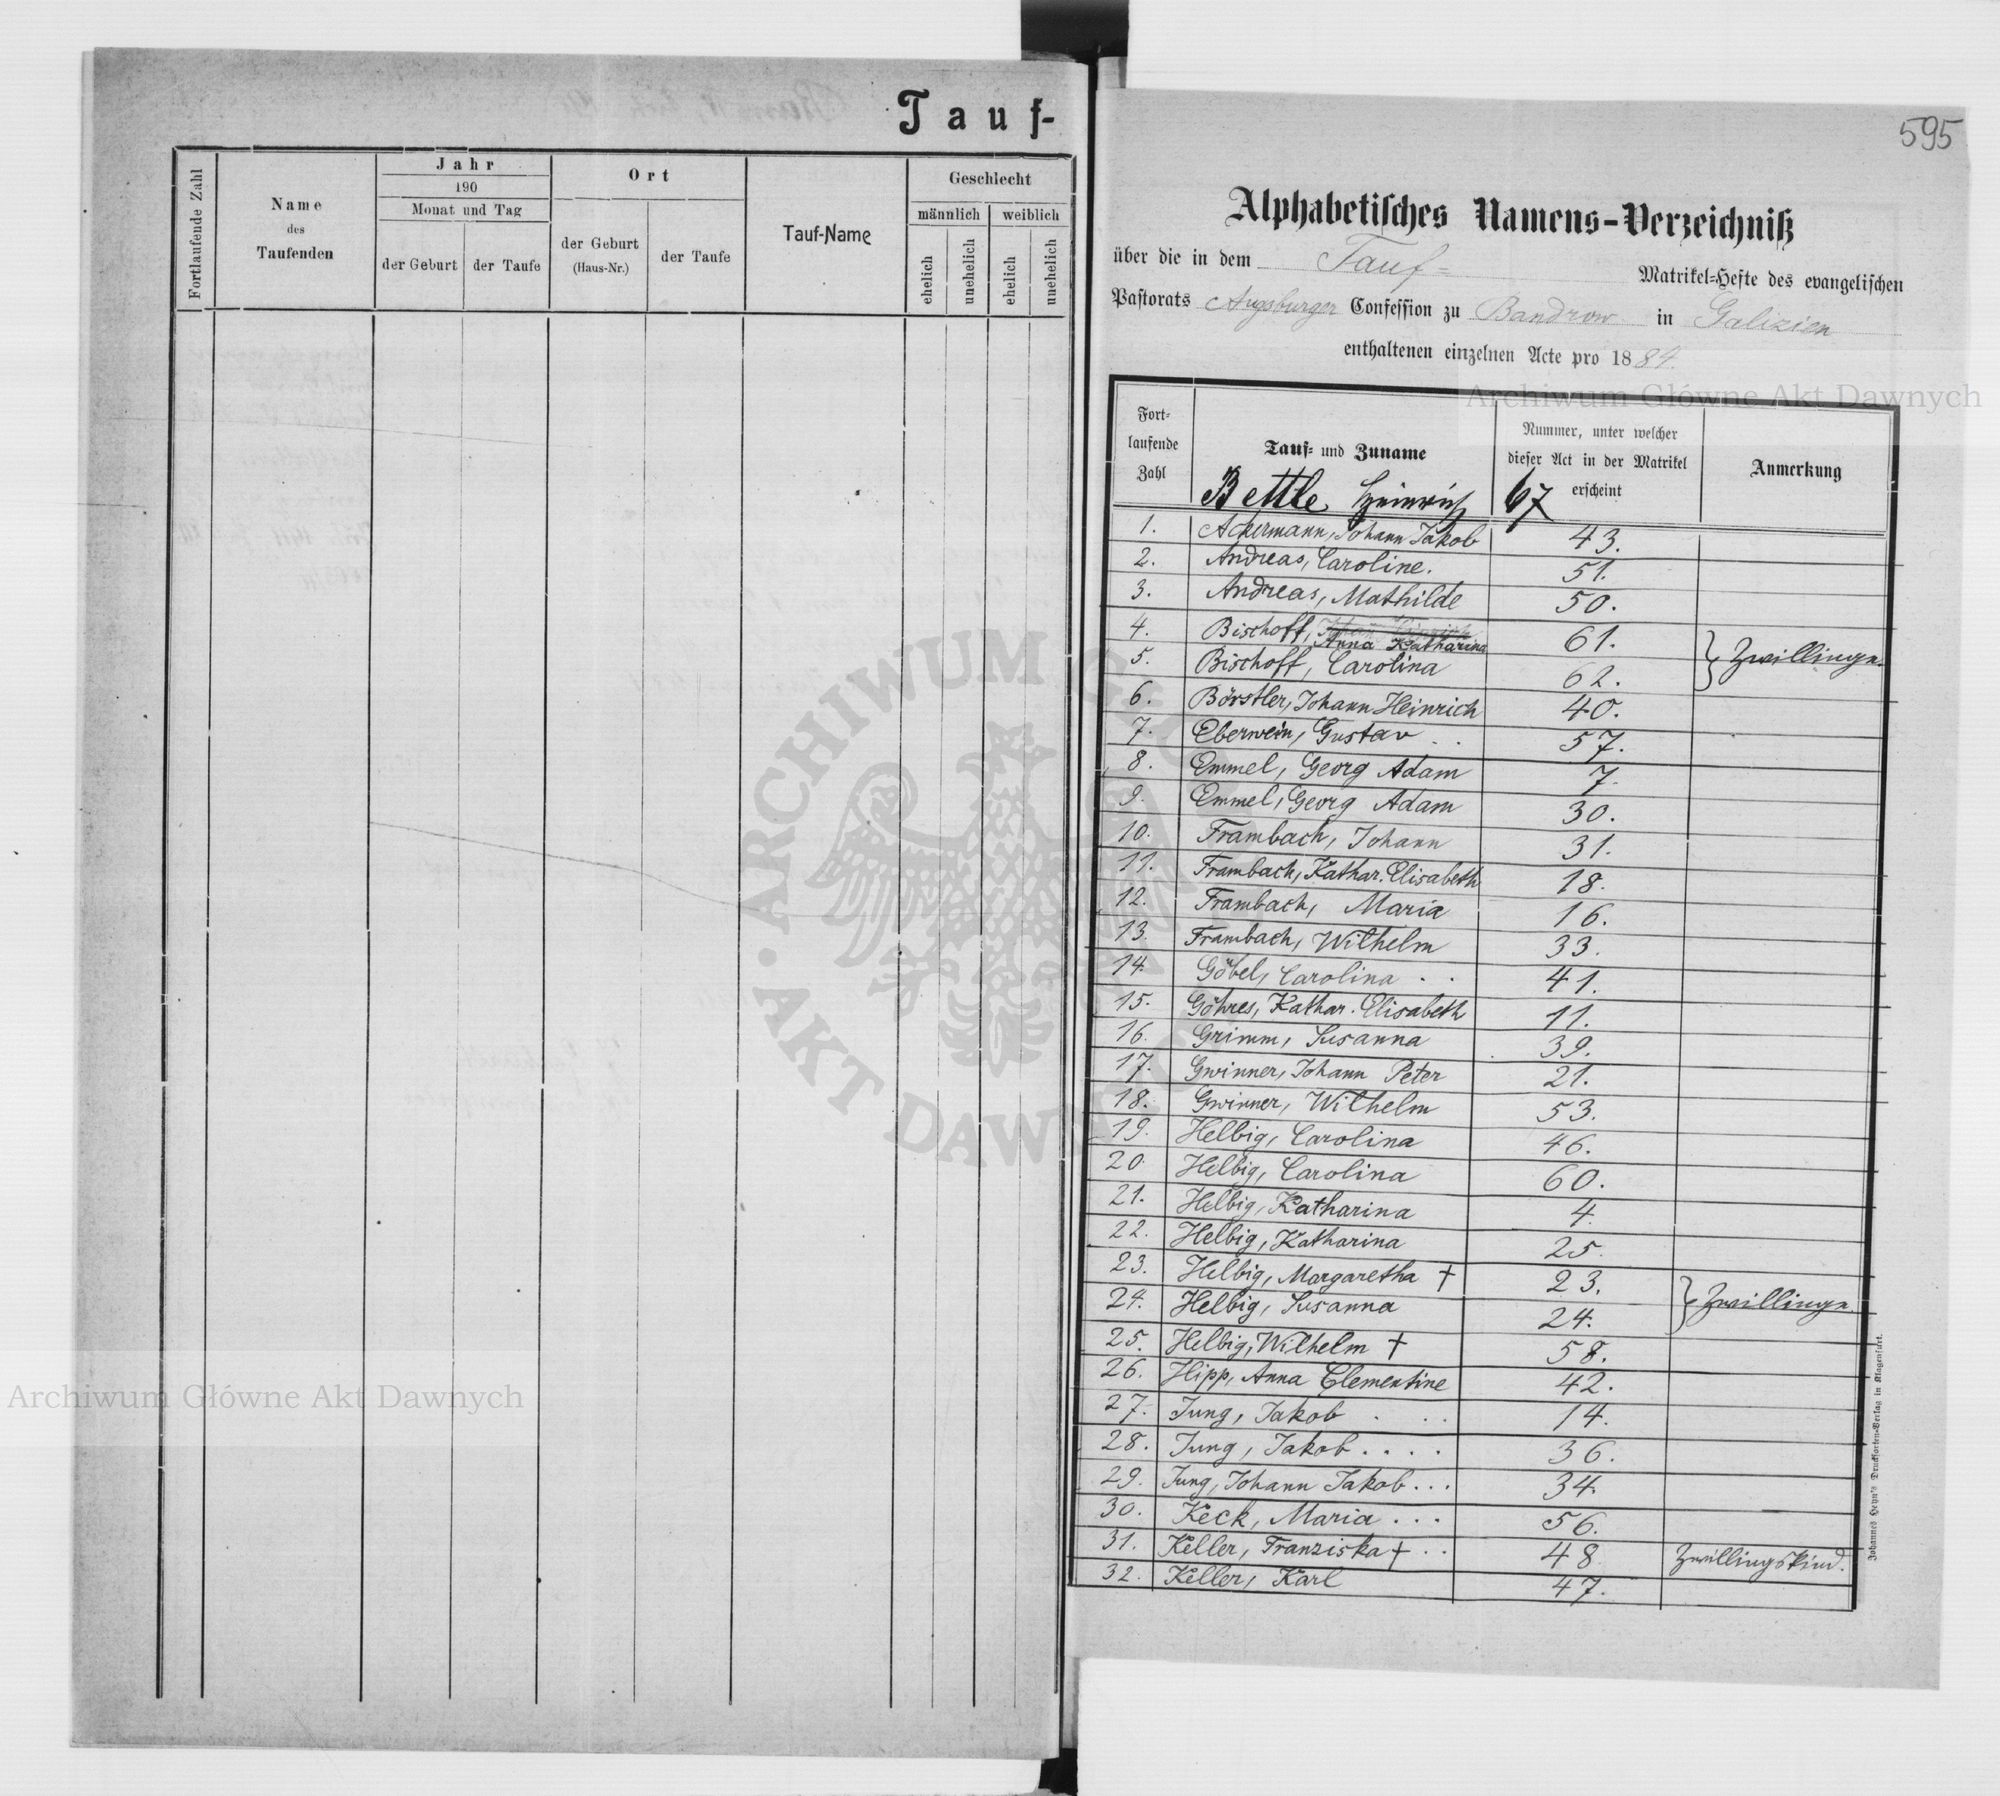 Tauf-
Fortlaufende Zahl
Name
des
Taufenden
Jahr
190
Monat und Tag
der Geburt
der Taufe
Ort
der Geburt
(Haus-Nr.)
der Taufe
Tauf-Name
Geschlecht
männlich
weiblich
ehelich
unehelich
ehelich
unehelich
595
Alphabetisches Namens-Verzeichniß
über die in dem Tauf= Matrikel-Hefte des evangelischen
Pastorats Augsburger Confession zu Bandrow in Galizien
enthaltenen einzelnen Acte pro 1884.
Archiwum Główne Akt Dawnych
Fort-
laufende
Zahl
Tauf- und Zuname
Nummer, unter welcher
dieser Act in der Matrikel
erscheint
Anmerkung
Bettle Heinrich 67
1. Ackermann, Johann Jakob 43.
2. Andreas, Caroline. 51.
3. Andreas, Mathilde 50.
4. Bischoff, Anna Katharina 61. Zwillinge.
5. Bischoff, Carolina 62.
6. Börstler, Johann Heinrich 40.
7. Eberwein, Gustav . . 57.
8. Emmel, Georg Adam 7.
9. Emmel, Georg Adam 30.
10. Frambach, Johann 31.
11. Frambach, Kathar. Elisabeth 18.
12. Frambach, Maria 16.
13. Frambach, Wilhelm 33.
14. Göbel, Carolina . . 41.
15. Göhres, Kathar. Elisabeth 11.
16. Grimm, Susanna 39.
17. Gwinner, Johann Peter 21.
18. Gwinner, Wilhelm 53.
19. Helbig, Carolina 46.
20. Helbig, Carolina 60.
21. Helbig, Katharina 4.
22. Helbig, Katharina 25.
23. Helbig, Margaretha † 23. Zwillinge.
24. Helbig, Susanna 24.
25. Helbig, Wilhelm † 58.
26. Hipp, Anna Clementine 42.
27. Jung, Jakob . . . 14.
28. Jung, Jakob . . . . 36.
29. Jung, Johann Jakob . . . 34.
30. Keck, Maria . . . 56.
31. Keller, Franziska † . . 48 Zwillingskind.
32. Keller, Karl 47.
Johannes Heyn's Drucksorten-Verlag in Klagenfurt.
ARCHIWUM
AKT DAWN
Archiwum Główne Akt Dawnych